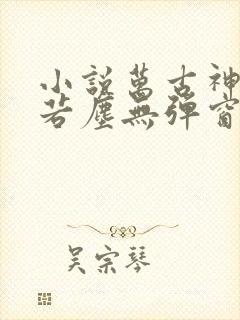 小說萬古神
若塵無彈窗
吴宗琴